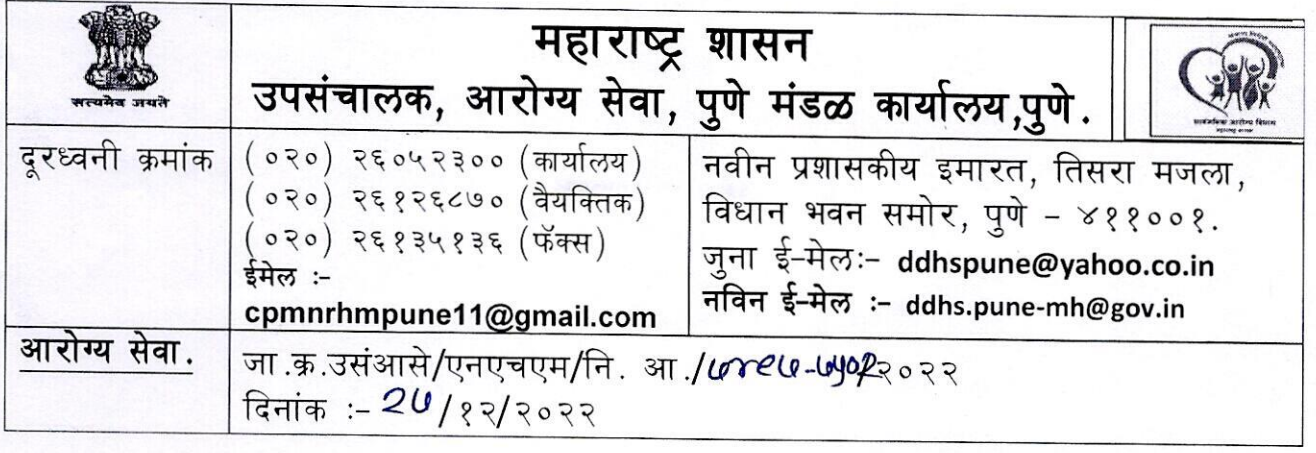 सत्यमेव जयते
महाराष्ट्र शासन
उपसंचालक, आरोग्य सेवा, पुणे मंडळ कार्यालय,पुणे.
सार्वजनिक आरोग्य विभाग
दूरध्वनी क्रमांक
(०२०) २६०५२३०० (कार्यालय)
(०२०) २६१२६८७० (वैयक्तिक)
(०२०) २६१३५१३६ (फॅक्स)
ईमेल :-
cpmnrhmpune11@gmail.com
नवीन प्रशासकीय इमारत, तिसरा मजला,
विधान भवन समोर, पुणे - ४११००१.
जुना ई-मेलः- ddhspune@yahoo.co.in
नविन ई-मेल :- ddhs.pune-mh@gov.in
आरोग्य सेवा.
जा.क्र.उसंआसे/एनएचएम/नि. आ./२०२२
दिनांक :- २७/१२/२०२२